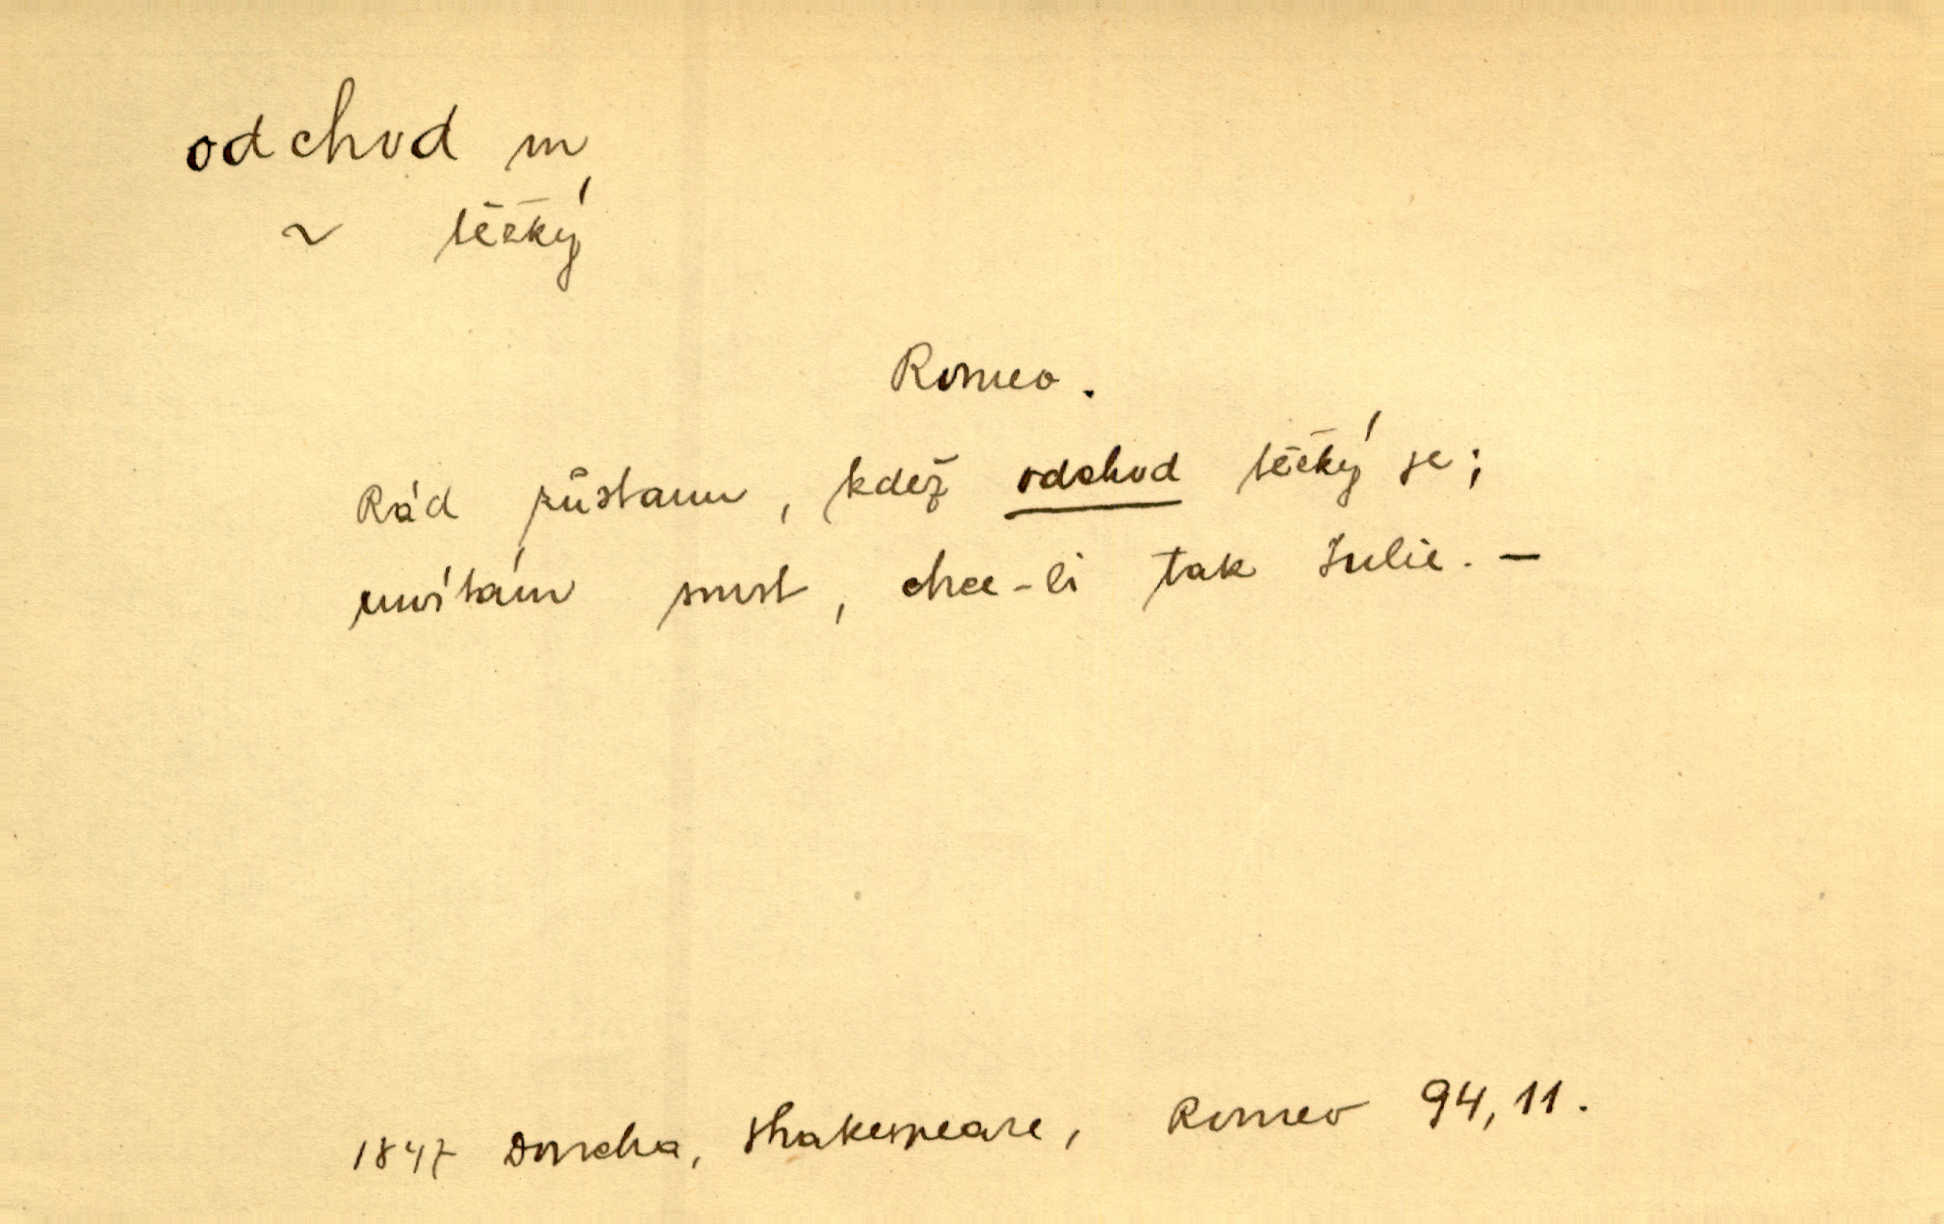 odchod m
~ těžký
Romeo.
Rád zůstanu, kdež odchod těžký je;
uvítám smrt, chce-li tak Julie. –
1847 Doucha, Shakespeare, Romeo 94, 11.